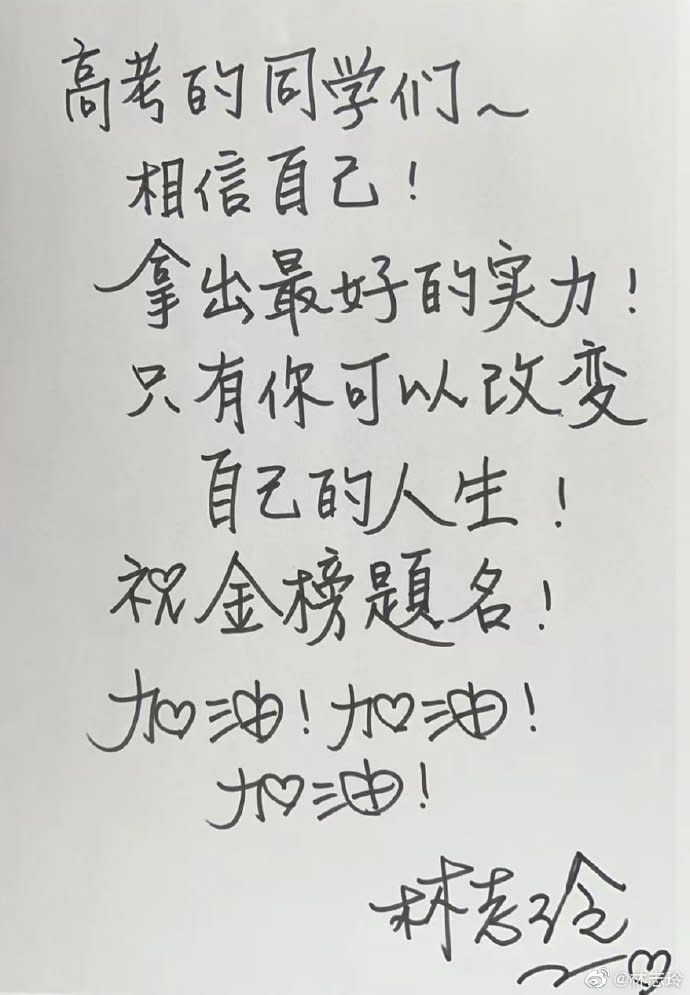 高考的同学们~
相信自己!
拿出最好的实力!
只有你可以改变
自己的人生!
祝金榜题名!
加油!加油!
加油!
林志玲
@林志玲